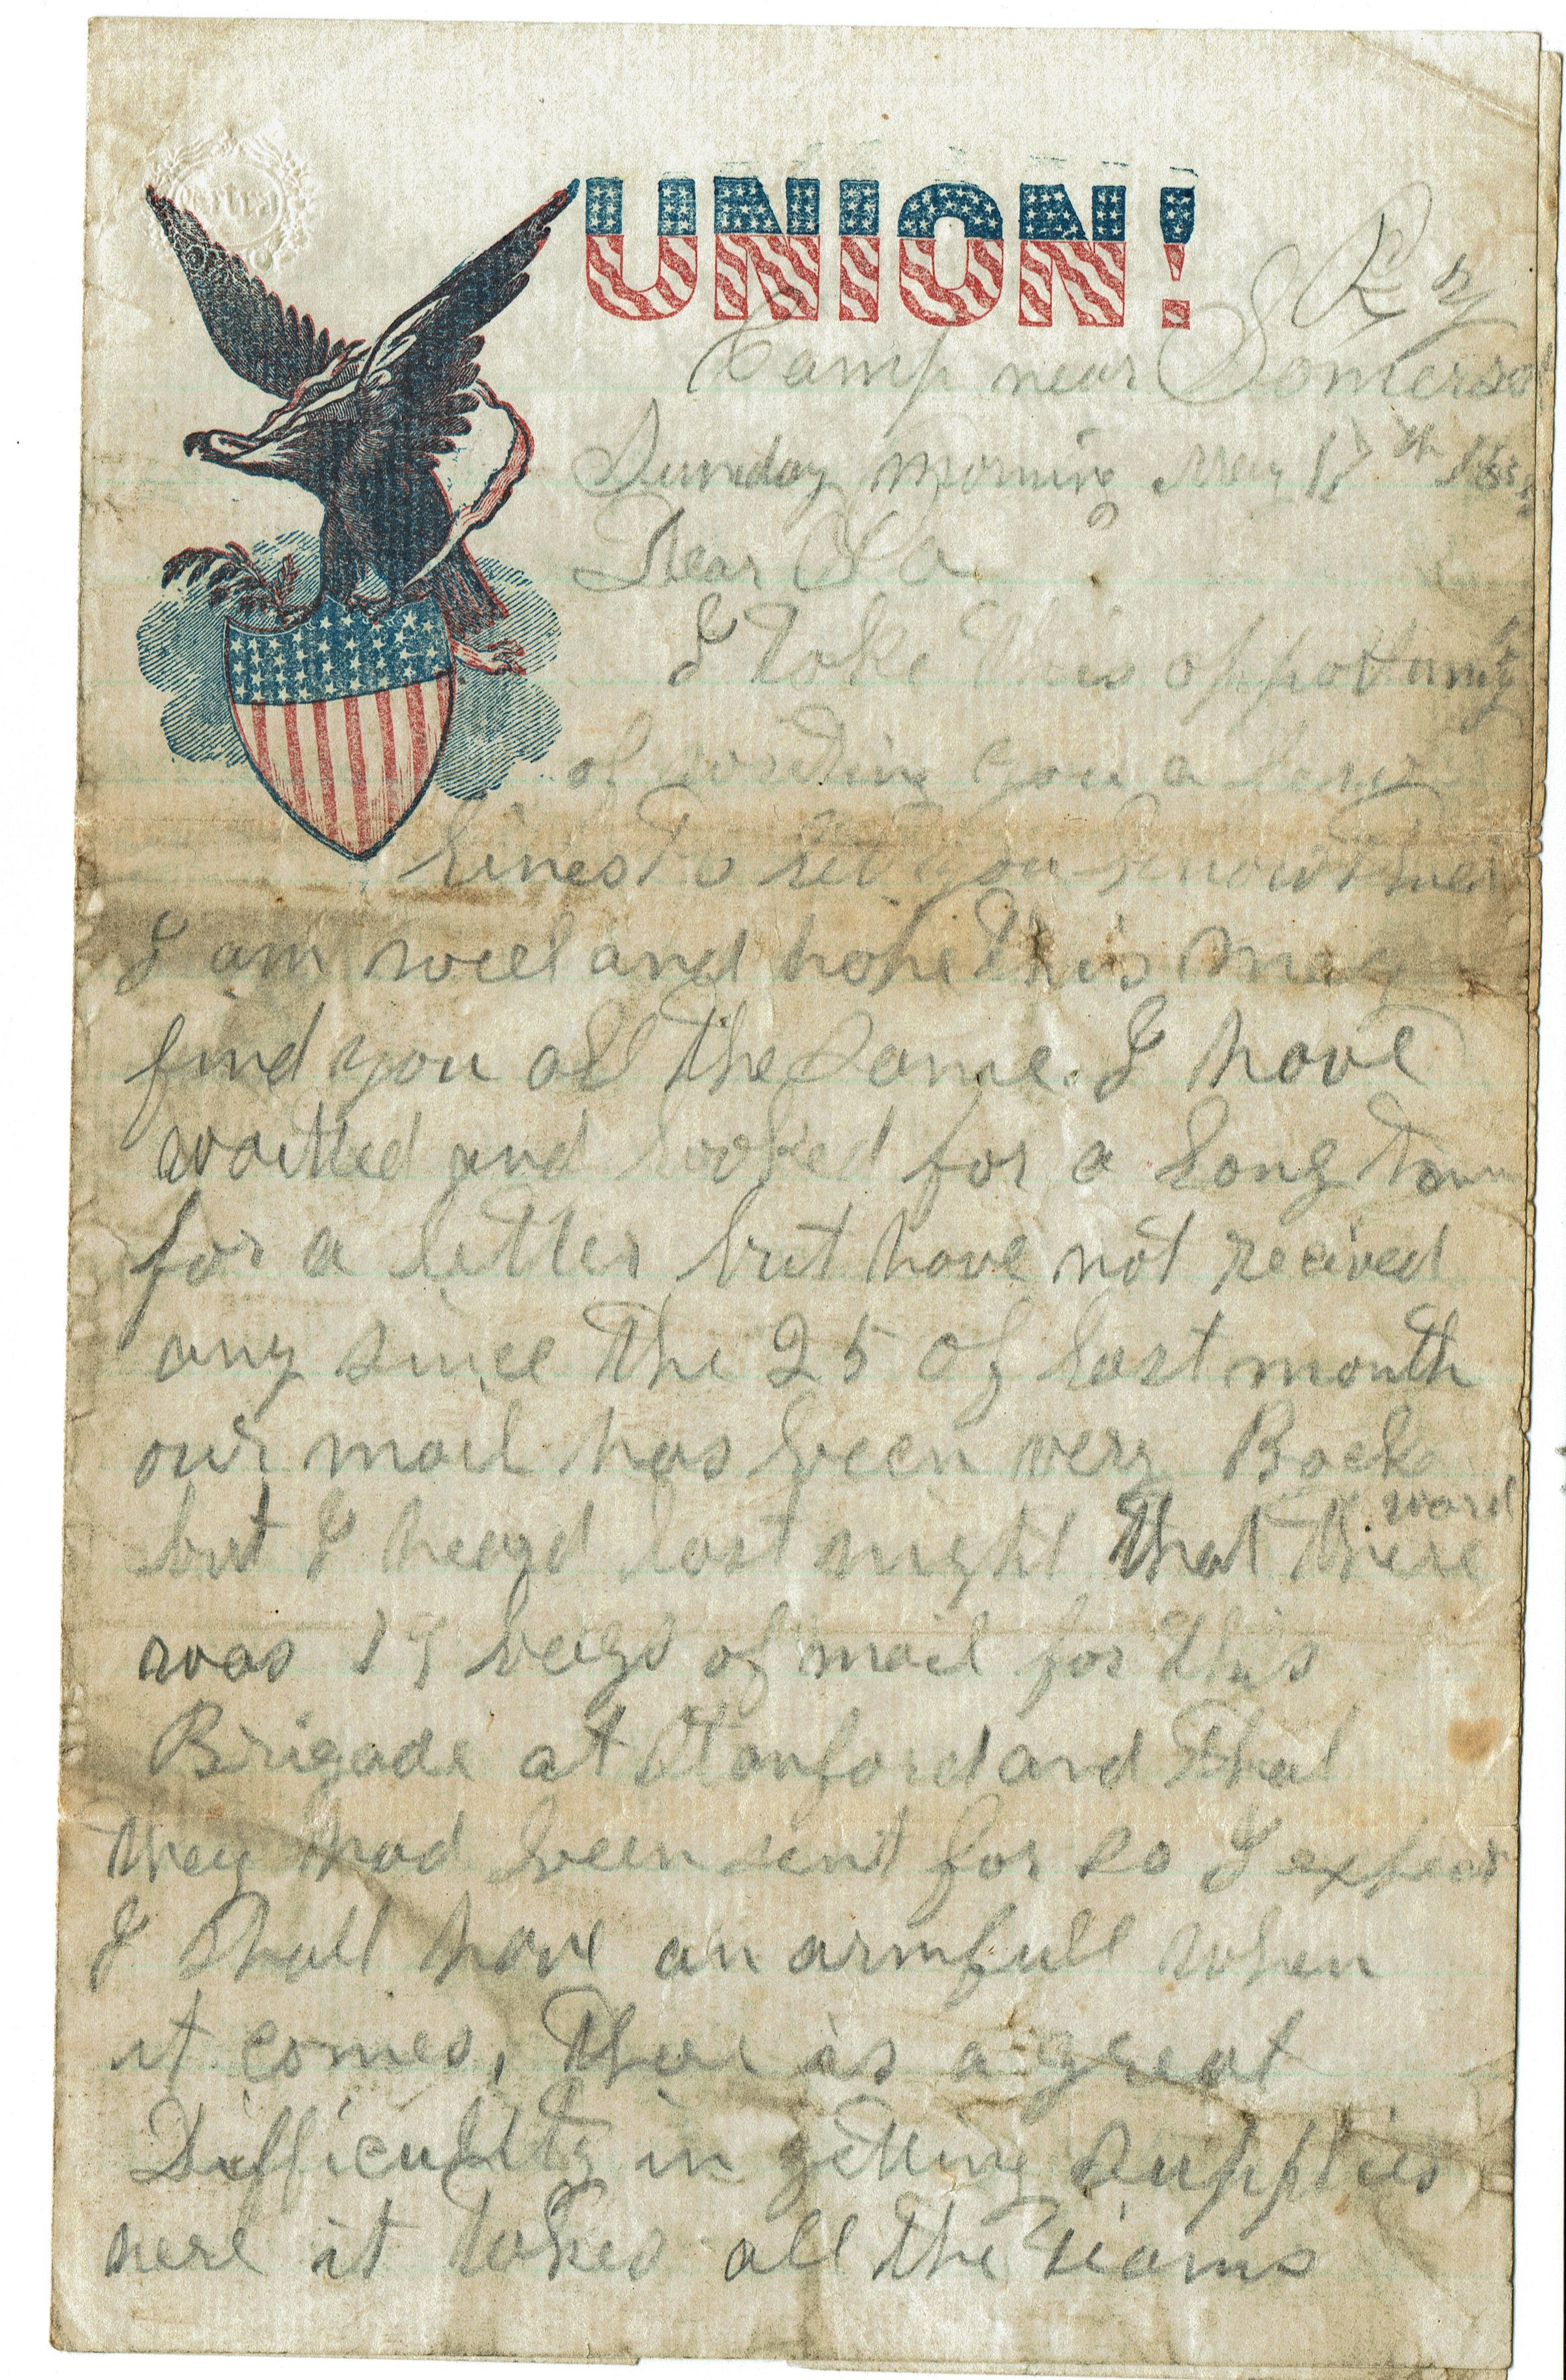 extra
UNION!
Ky
Camp near Somerset
Sunday morning May 17th 1863
Dear Pa
I take this oppottunity
of writing you a few
lines to let you know that
I am well and hope this may
find you all the same. I have
waitted and looked for a long time
for a letter but have not recived
any since the 25 of last month
our mail has been very Back
ward
but I heard last night that there
was 19 bags of mail for this
Brigade at Stanford and that
they had been sent for so I expect
I shall have an armfull when
it comes, Thare is a great
Difficultity in getting supplies
here it takes all the teams